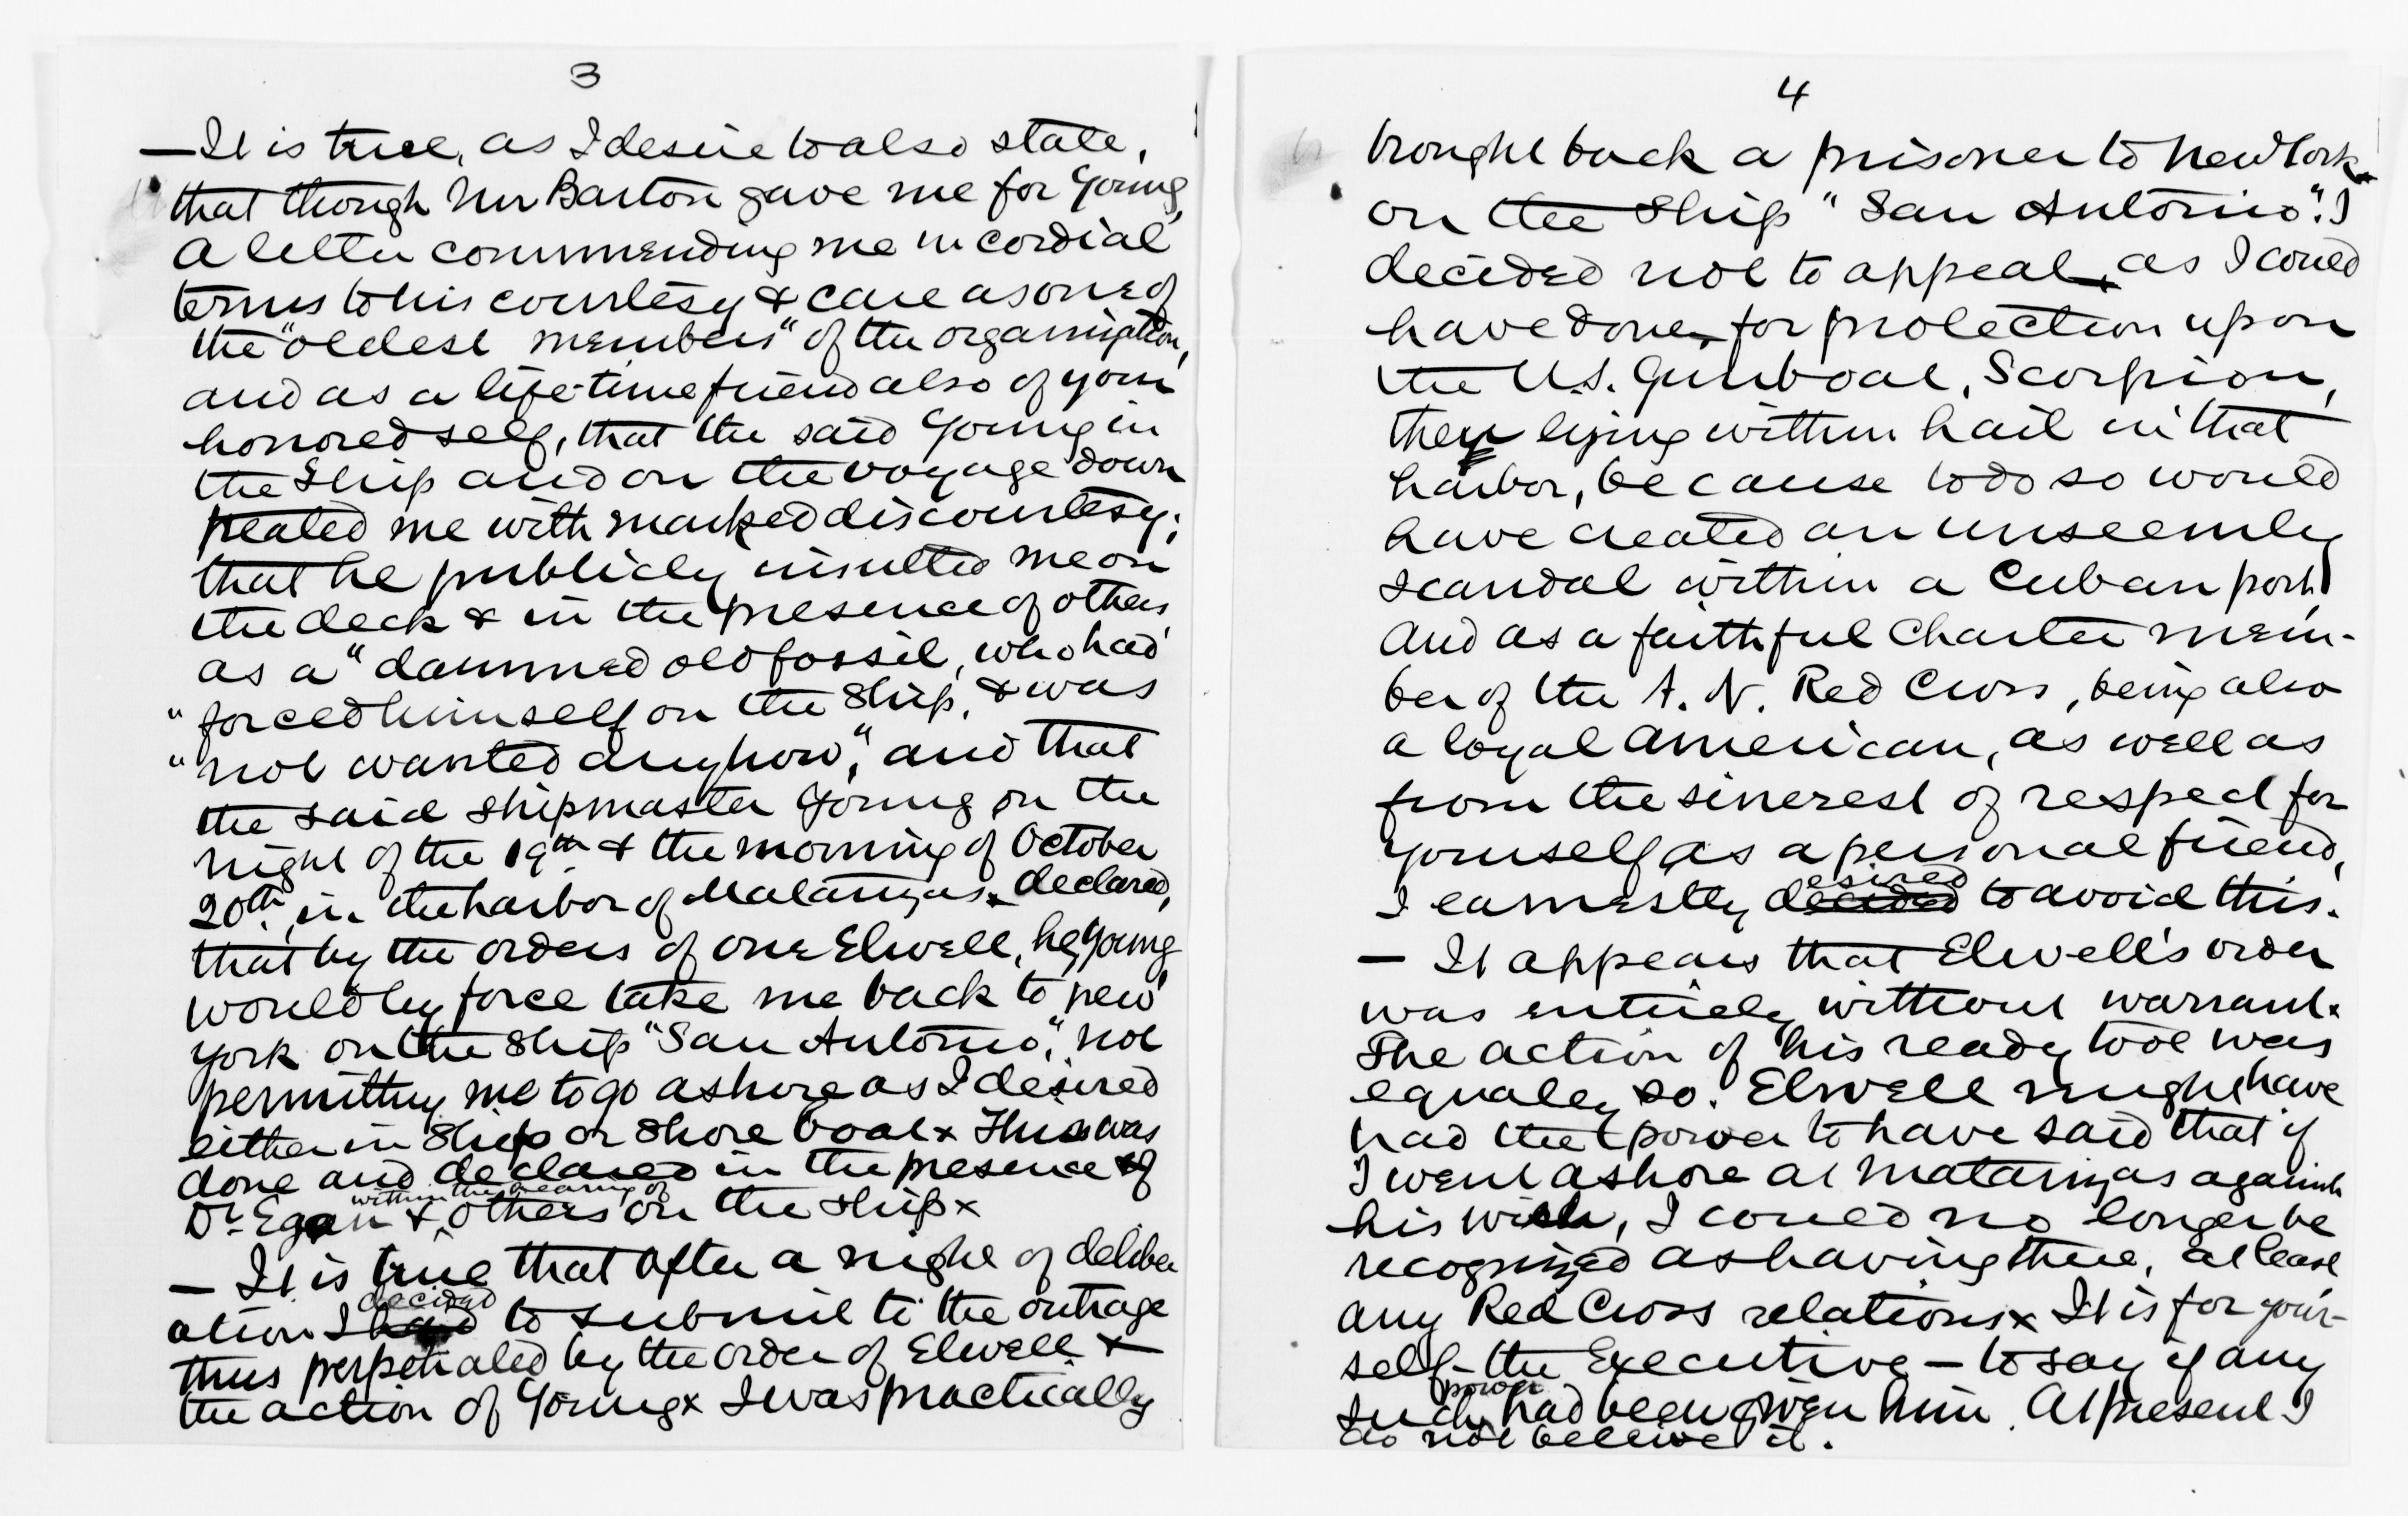 3
— It is true, as I desire to also state,
that though Mr Barton gave me for Young,
a letter commending me in cordial
terms to his courtesy & care as one of
the "oldest members" of the organization,
and as a life-time friend also of your
honored self, that the said Young in
the Ship and on the voyage down
treated me with marked discourtesy;
that he publicly insulted me on
the deck & in the presence of others,
as a "damned old fossil, who had
"forced himself on the Ship, & was
"not wanted anyhow", and that
the said shipmaster Young on the
night of the 19th & the morning of October
20th, in the harbor of Matanzas declared,
that by the orders of one Elwell, he, Young
would by force take me back to New
York on the Ship "San Antonio", not
permitting me to go ashore as I desired
either in Ship or shore boat x This was
done and declared in the presence of
within the hearing of
Dr Egan & others on the ship x
— It is true that after a night of deliber
decided
ation I had to submit to the outrage
thus perpetrated by the order of Elwell &
the action of Young x I was practically
4
brought back a prisoner to New York
on the Ship "San Antonio". I
decided not to appeal, as I could
have done, for protection upon
the U.S. Gunboat, Scorpion,
then lying within hail in that
harbor, because to do so would
have created an unseemly
scandal within a Cuban port,
and as a faithful Charter mem-
ber of the A. N. Red Cross, being also
a loyal American, as well as
from the sincerest of respect for
yourself as a personal friend,
esired
I earnestly decided to avoid this.
— It appears that Elwell's order
was entirely without warrant x
The action of his ready tool was
equally so. Elwell might have
had the power to have said that if
I went ashore at Matanzas against
his wish, I could no longer be
recognized as having there, at least
any Red Cross relations x It is for your-
self - the Executive — to say if any
power
such had been given him. At present I
do not believe it.